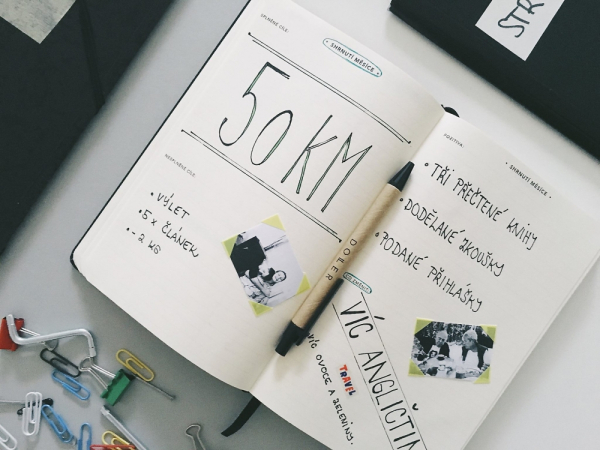 SPLNĚNÉ CÍLE:
• SHRNUTÍ MĚSÍCE •
50 KM
NESPLNĚNÉ CÍLE:
• VÝLET
• 5 X ČLÁNEK
• - 2 KG
POZITIVA:
• SHRNUTÍ MĚSÍCE •
• TŘI PŘEČTENÉ KNIHY
• DODĚLANÉ ZKOUŠKY
• PODANÉ PŘIHLÁŠKY
VÍC ANGLIČTIN
VÍC OVOCE A ZELENINY.
TRAVEL
STR